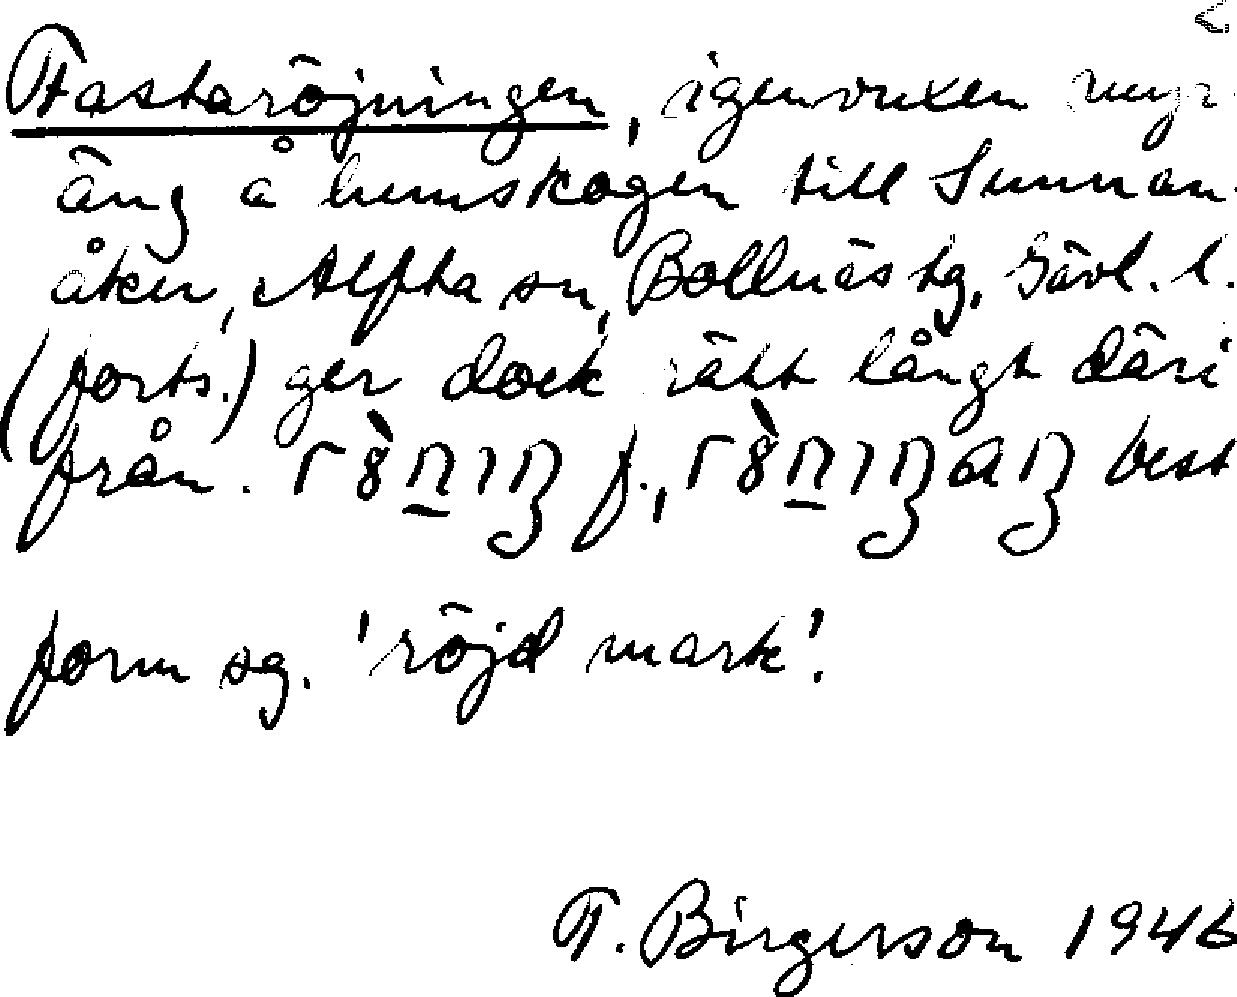 Fastaröjningen, igenvuxen myr-
äng å hemskogen till Sunnan-
åker, Alfta sn, Bollnäs tg, Gävl. l.
(forts.) ger dock rätt långt däri
från. f., best
form sg. 'röjd mark'.
F. Birgerson 1946